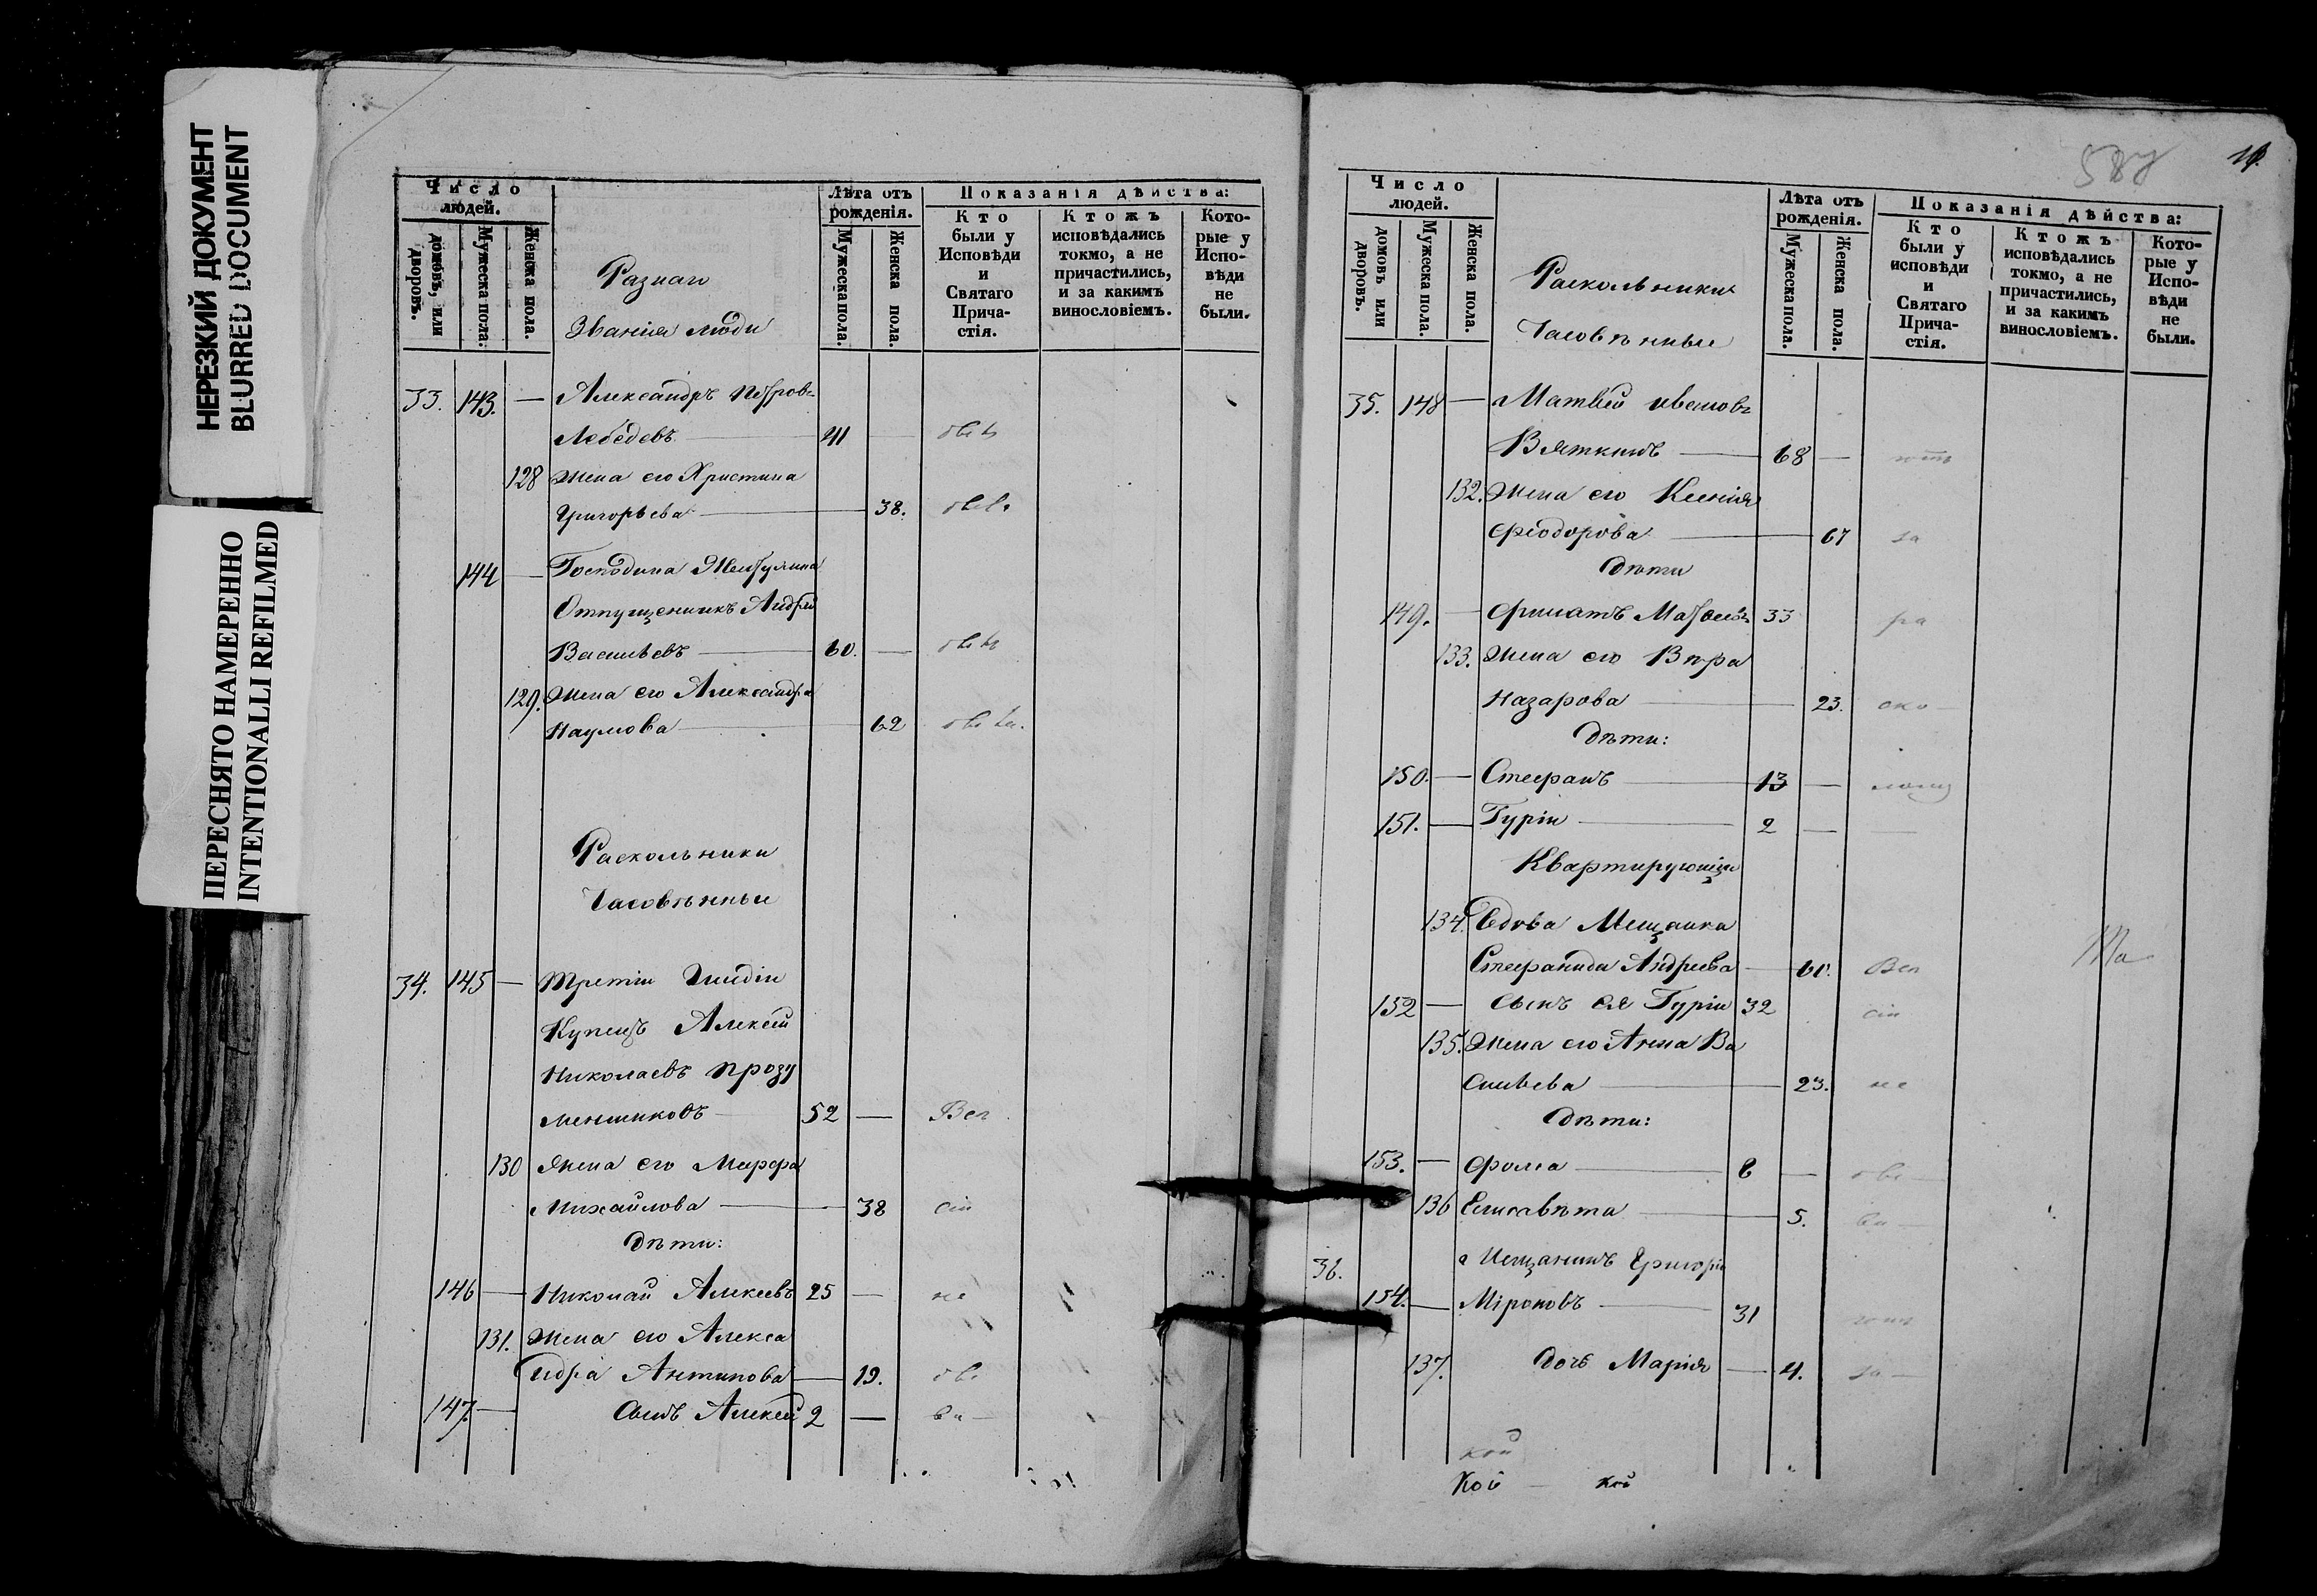 НЕРЕЗКИЙ ДОКУМЕНТ
BLURRED DOCUMENT
ПЕРЕСНЯТО НАМЕРЕННО
INTENTIONALLI REFILMED
Число людей.
домовъ, или дворовъ.
Мужеска пола.
Женска пола.
Разнаго
Званія люди
Лѣта отъ рожденія.
Мужеска пола.
Женска пола.
Показанія дѣйства:
Кто были у Исповѣди и Святаго Прича-стія.
Ктожъ исповѣдались токмо, а не причастились, и за какимъ винословіемъ.
Кото-рые у Испо-вѣди не были.
33. 143. — Александръ Петровъ
Лебедевъ — 41 —
128 Жена его Христина
Григорьева — 38.
144 — Господина
Отпущенникъ Андрей
Васильевъ — 60. —
129. Жена его Александра
Наумова — 62
Раскольники
Часовенные
34. 145 — Третіи Гилдіи
Купецъ Алексей
Николаевъ Прозу
менщиковъ — 52 — Вси
130 Жена его Марфа
Михайлова — 38 сіи
Дѣти:
146 — Николай Алексеевъ 25 — не
131. Жена его Алекса
ндра Антипова — 19. обѣ
147. — Сынъ Алексей 2 — ва
587
Число людей.
домовъ или дворовъ.
Мужеска пола.
Женска пола.
Раскольники
Часовенные
Лѣта отъ рожденія.
Мужеска пола.
Женска пола.
Показанія дѣйства:
Кто были у исповѣди и Святаго Прича-стія.
Ктожъ исповѣдались токмо, а не причастились, и за какимъ винословіемъ.
Кото-рые у Испо-вѣди не были.
35. 148 — Матвей Ивановъ
Вяткинъ — 68 —
132. Жена его Ксенія
Феодорова — 67 за
Дѣти
149. — Филатъ Матвеевъ 33 ра
133. Жена его Вѣра
Назарова — 23. ско
Дѣти:
150. — Стефанъ — 13 —
151. — Гурій — 2 —
Квартирующіи
134. Вдова Мещанка
Стефанида Андреева — 61. Вси
152 — Сынъ ея Гурій 32 сіи
135. Жена его Анна Ва
сильева — 23. не
Дѣти:
153. — Фома — 8 —
136 Елисавета — 5. ва
36. Мещанинъ Григорій
154. — Мироновъ — 31
137. Дочь Марія — 4. за
кой
Кой — кой